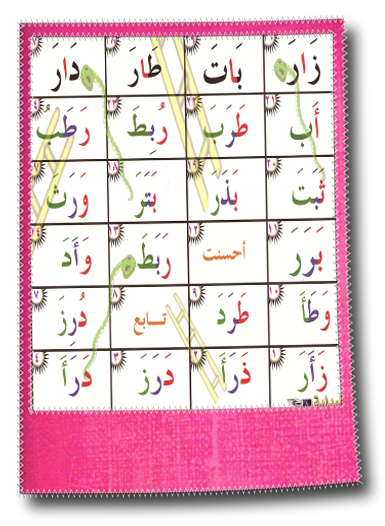 زَارَ بَاتَ طَارَ دَارَ
أَب طَرَب رُبِطَ رَطَبُ
ثَبَتَ بَذَرَ بَتَرَ وَرَثَ
بَرَرَ أحسنت رَبَطَ وَأَدَ
وَطَأَ طَرَدَ تـابع دُرِزَ
زَأَرَ ذَرَأَ دَرَزَ دَرَأَ
بداية